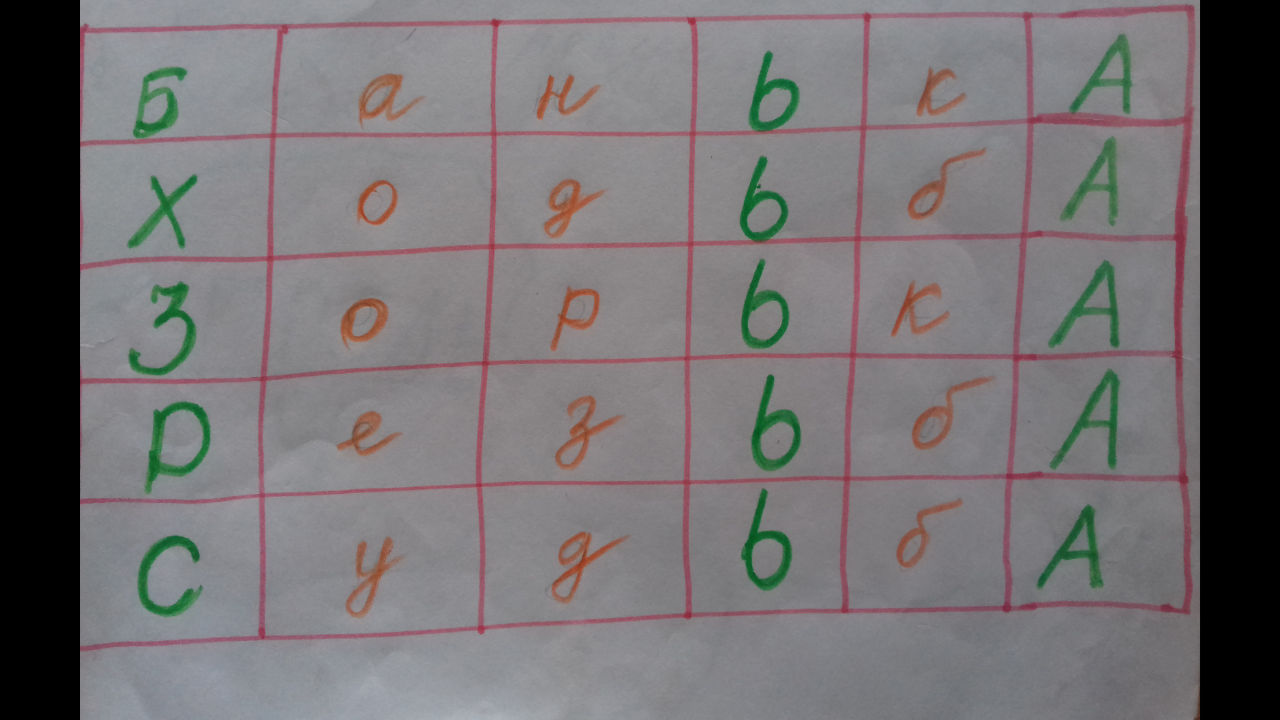 Б а н ь к А
Х о д ь б А
З о р ь к А
Р е з ь б А
С у д ь б А